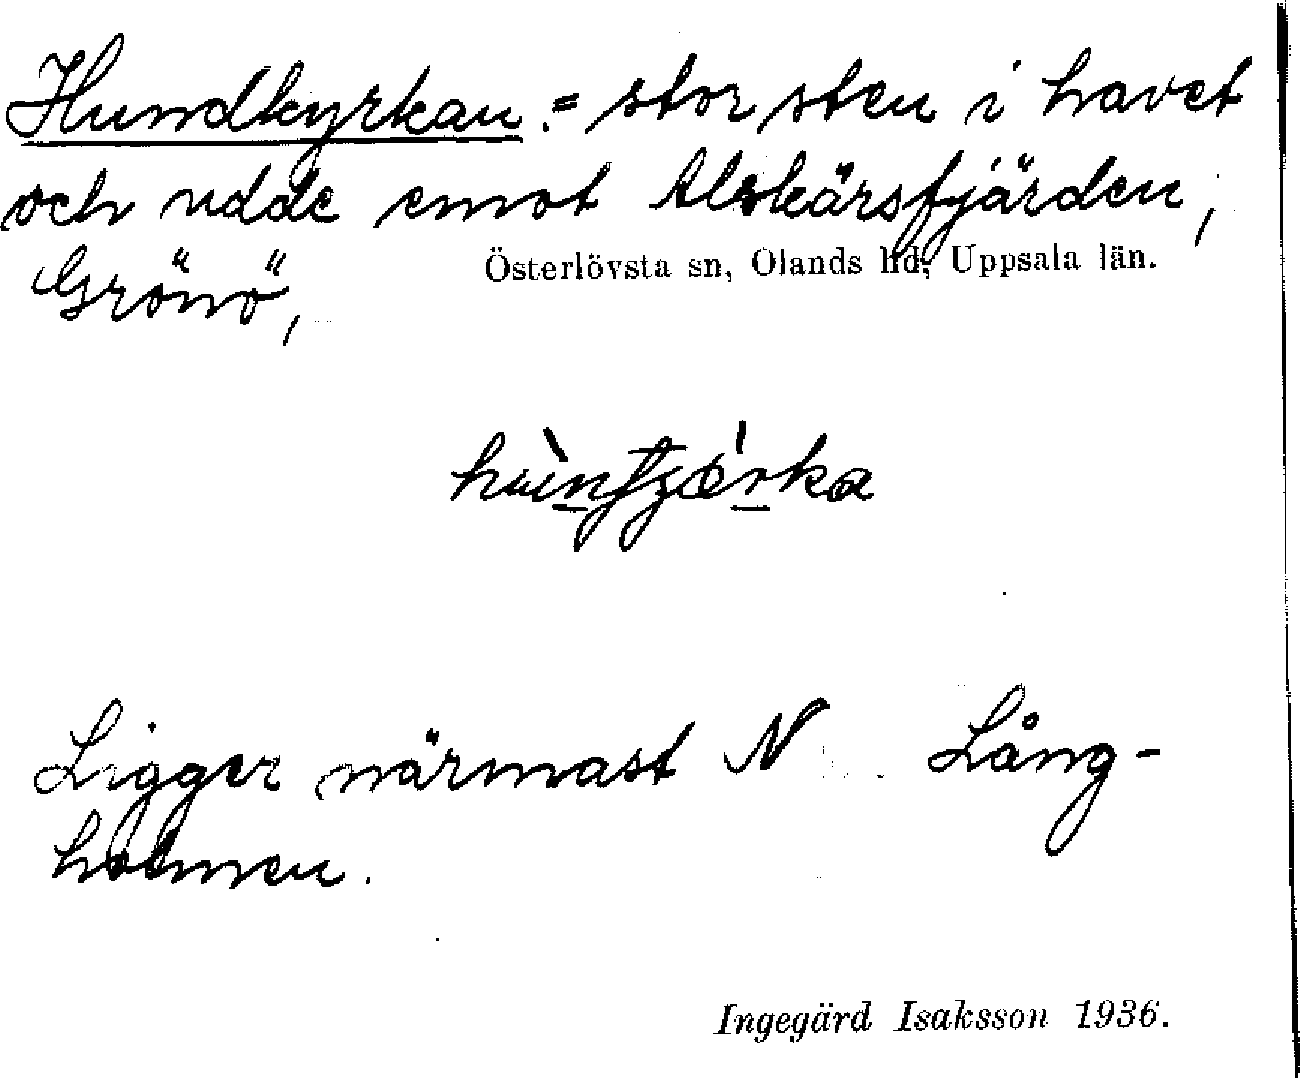 Hundkyrkan. = stor sten i havet
och udde emot Alskärsfjärden,
Grönö,
Österlövsta sn, Olands hd, Uppsala län.
Ligger närmast N Lång-
holmen.
Ingegärd Isaksson 1936.